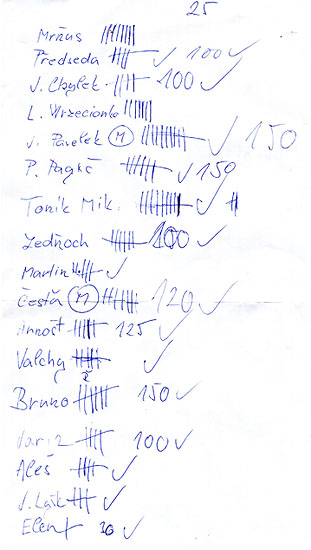 25
Mrňus
Předseda 100
J. Chytek 100
L. Wrzecionko
J. Pavelek M 150
P. Pagáč 150
Toník Mik.
Zedňoch 100
Martin
Čestá M 120
Arnošt 125
Valchy
Bruno 150
100
Aleš
J.
Elen